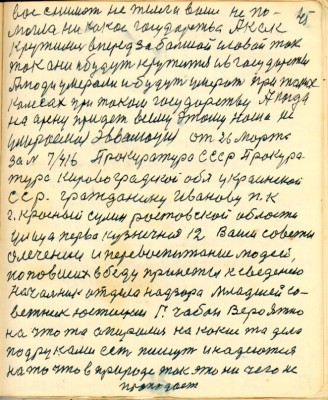 45
вас слишком не
могла ни какое государства А как
крутили вперед за большой головой так
так они и будут крутится и в государстви
А люди умерали и будут умерат при таких
колесах при таком государству А когда
на арену придет всему этому наша не
от 26 марта
за № 7/416 Прокуратура СССР Прокура-
тура Кировоградской обл украинской
ССР. гражданину Иванову п.к
г. Красный сулин ростовской области
улица перва кузничная 12 Ваши советы
о лечении и перевоспитание людей,
попавших в беду приняты к сведению
Начальник отдела надзора Младший со-
ветник юстиции Г. чабан Вероятно
на что то опирался на какие то дела
под руками ест пишут и надеются
на то что в природе так это ни чего не
пропадает